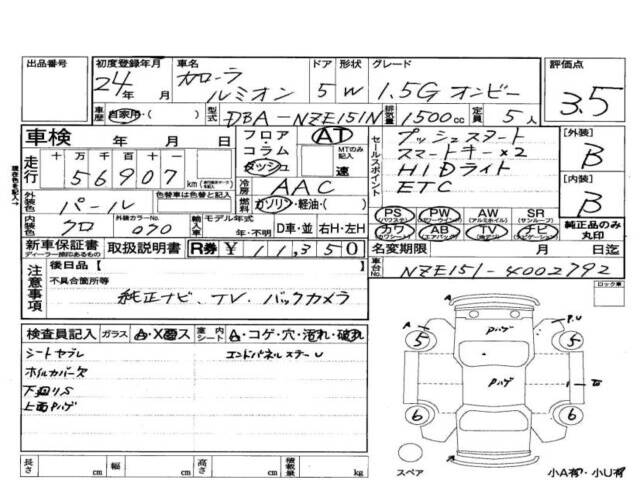 出品番号
初度登録年月 24年 月
車名 カローラ ルミオン
ドア 5
形状 W
グレード 1.5G オンビー
評価点 3.5
車歴 自家用・( )
型式 DBA-NZE151N
排気量 1500cc
定員 5人
車検 年 月 日
フロア コラム ダッシュ AT MTのみ記入 速
セールスポイント
プッシュスタート
スマートキー×2
HIDライト
ETC
[外装] B
[内装] B
走行 十万千百十一 56907km
冷房 AAC
外装色 パール
色替車は色替と記入
燃料 ガソリン・軽油・( )
内装色 クロ
外装カラーNo. 070
モデル年式 年・不明
輸入車 D車・並 右H・左H
PS PW AW SR
(パワステ) (パワーウィンド) (アルミホイル) (サンルーフ)
カワ AB TV ナビ
(カワシート) (エアバック) (ナビゲーション)
純正品のみ丸印
新車保証書 ディーラー捺印あるもの
取扱説明書
R券 ¥11,350
名変期限 月 日迄
車台No. NZE151-4002792
ロック車
注意事項
後日品【 】
不具合箇所等
純正ナビ、TV、バックカメラ
検査員記入 ガラス A・X・ス 室内シート A・コゲ・穴・汚れ・破れ
シートヤブレ
ホイルカバー欠
下廻りS
上面Pハゲ
エンドパネルスナーU
A
P.U
Pハゲ
5
5
Pハゲ
6
6
スペア
小A有・小U有
長さ cm 幅 cm 高さ cm 積載量 kg